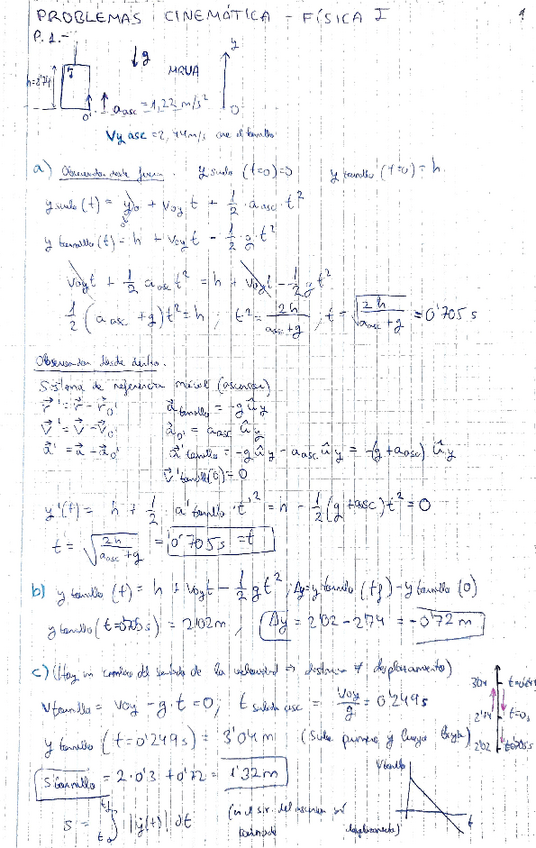 PROBLEMAS CINEMÁTICA - FÍSICA I
1
P. 1.-
↓g
y
h=2'74
MRUA
a asc = 1,22 m/s²
0'
0
Vy asc = 2,44 m/s cae el tornillo
a) Observador desde fuera. y suelo (t=0)=0 y tornillo (t=0)=h.
y suelo (t) = y0 + voy t + 1/2 · a asc · t²
0
y tornillo (t) = h + voy t - 1/2 · g · t²
voy t + 1/2 a asc t² = h + voy t - 1/2 g t²
1/2 (a asc + g) t² = h ; t² = 2h / (a asc + g) ; t = √(2h / (a asc + g)) = 0'705 s
Observador desde dentro.
Sistema de referencia móvil (ascensor)
r' = r - r0' a tornillo = -g ûy
v' = v - v0' a0' = a asc ûy
a' = a - a0' a' tornillo = -g ûy - a asc ûy = -(g + a asc) ûy
v' tornillo (0) = 0
y'(t) = h + 1/2 · a' tornillo · t'² = h - 1/2 (g + asc) t² = 0
t = √(2h / (a asc + g)) = 0'705 s = t
b) y tornillo (t) = h + voy t - 1/2 g t² ; Δy = y tornillo (tf) - y tornillo (0)
y tornillo (t=0'705 s) = 2'02 m ; Δy = 2'02 - 2'74 = -0'72 m
c) (Hay un cambio del sentido de la velocidad ⇒ distancia ≠ desplazamiento)
v tornillo = voy - g · t = 0 ; t subida asc = voy / g = 0'249 s
3'04 t=0'249
y tornillo (t=0'249 s) = 3'04 m (sube primero y luego baja)
2'74 t=0s
2'02 t=0'705s
s tornillo = 2 · 0'3 + 0'72 = 1'32 m
V tornillo
t
s = ∫ |y(t)| dt
t0
(en el sist. del ascensor sí
desplazamiento)